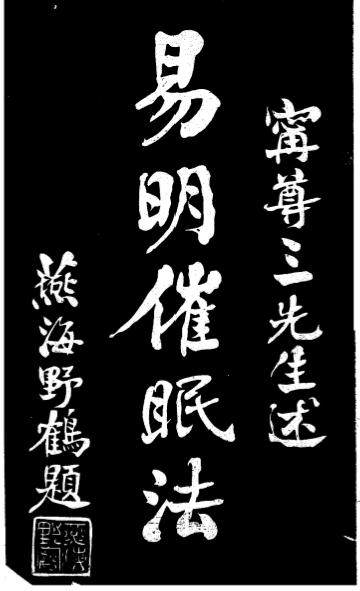 甯尊三先生述
易明催眠法
燕海野鶴題